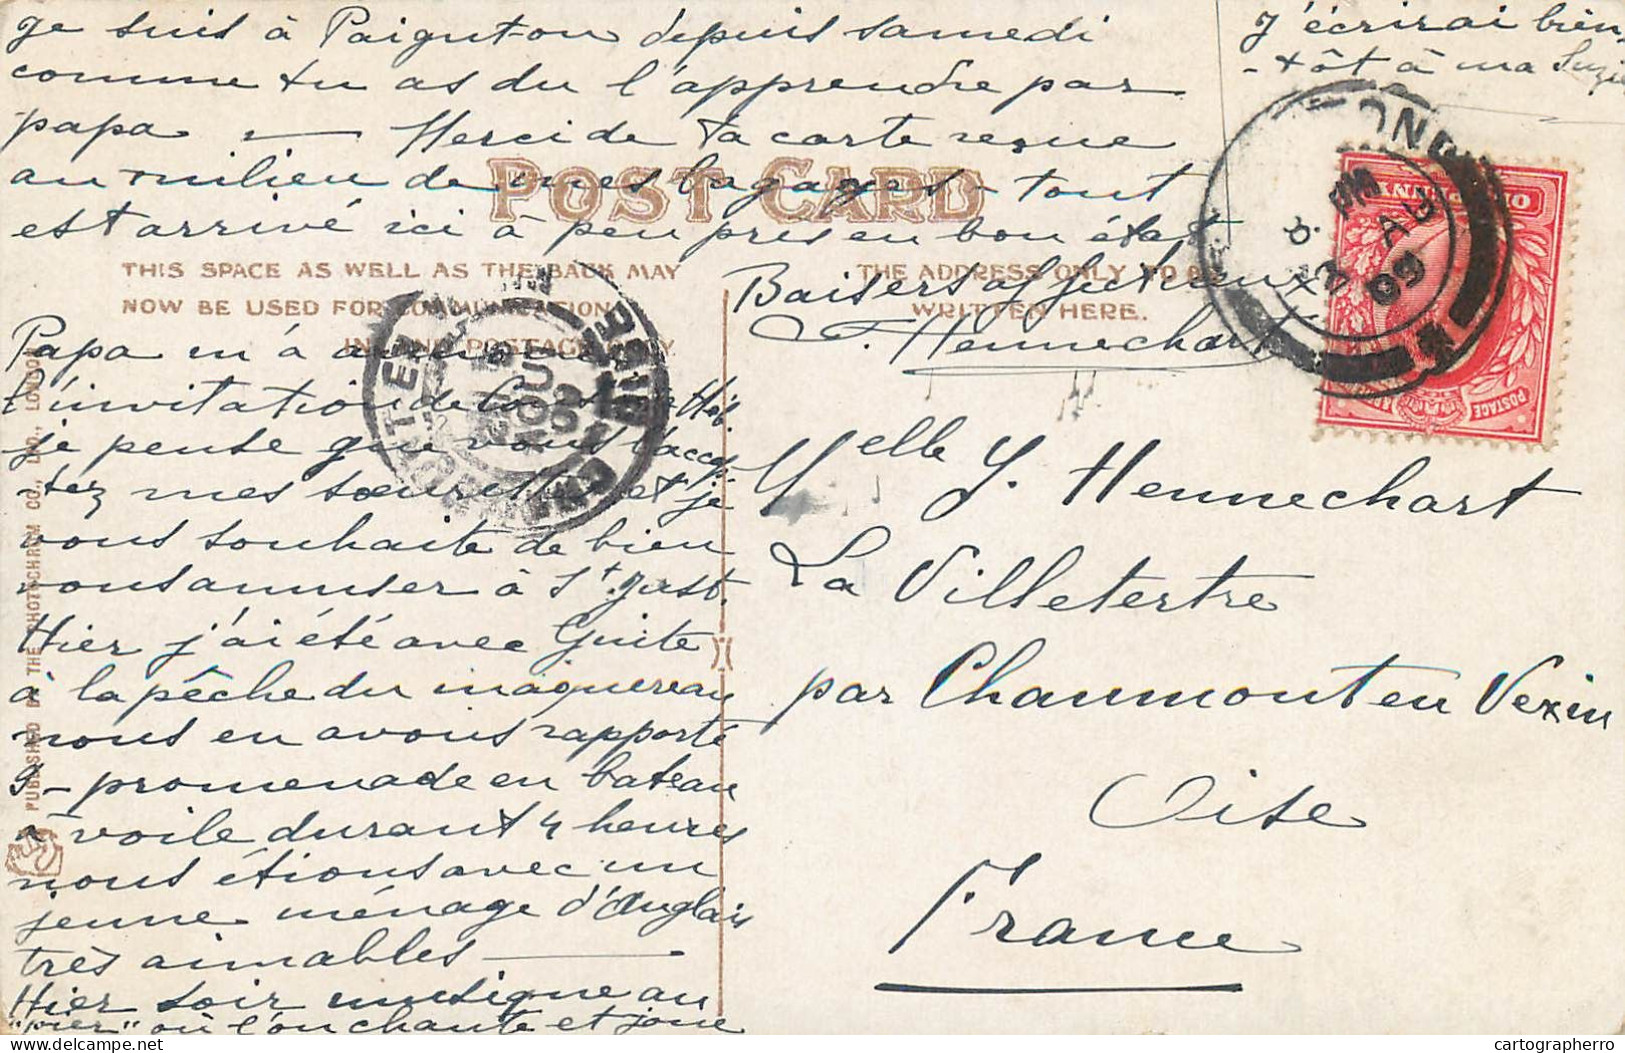 Je suis à Paignton depuis samedi
comme tu as du l'apprendre par
papa — Merci de ta carte reçue
au milieu de mes bagages – tout
est arrivé ici à peu près en bon état
Baisers affectueux
F. Hennechart
J'écrirai bien
- tôt à ma Suzie
POST CARD
THIS SPACE AS WELL AS THE BACK MAY
NOW BE USED FOR COMMUNICATION
INLAND POSTAGE ONLY.
THE ADDRESS ONLY TO BE
WRITTEN HERE.
Papa m'a
l'invitation de
je pense que vous l'accep
- tez mes soeurettes et je
vous souhaite de bien
vous amuser à St. Just.
Hier j'ai été avec Guite
à la pêche du maquereau
nous en avons rapporté
9 – promenade en bateau
à voile durant 4 heures
nous étions avec un
jeune ménage d'Anglais
très aimables —
Hier soir musique au
"pier" où l'on chante et joue
Melle Y. Hennechart
La Villetertre
par Chaumont en Vexin
Oise
France
PUBLISHED BY THE PHOTOCHROM CO., LTD., LONDON.
PM
AU
09
POSTAGE
cartographerro